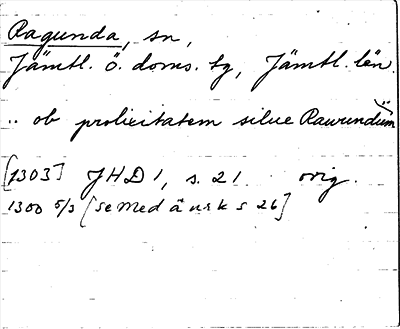 Ragunda, sn,
Jämtl. ö. doms. tg, Jämtl. län.
.. ob prolixitatem silue Rawundum ..
[1303] JHD 1, s. 21. orig.
1300 5/3 [se med änsk s 26]